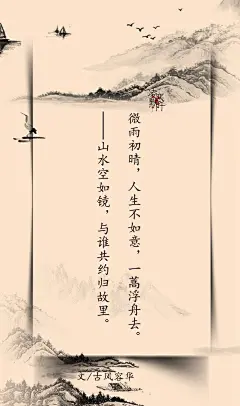 微雨初晴，人生不如意，一蒿浮舟去。
——山水空如镜，与谁共约归故里。
文/古风容华